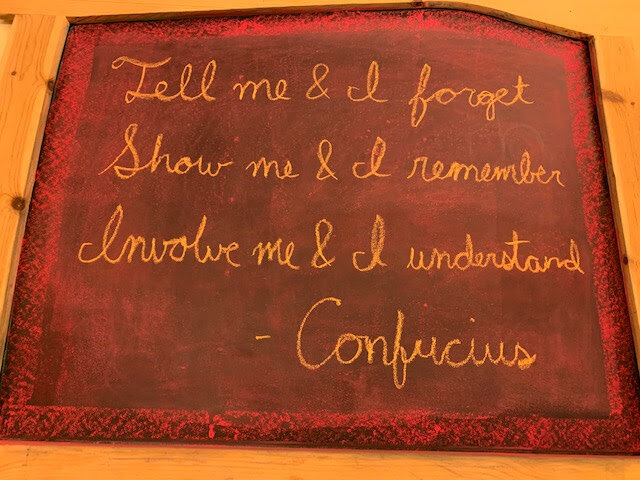 Tell me & I forget
Show me & I remember
Involve me & I understand
- Confucius